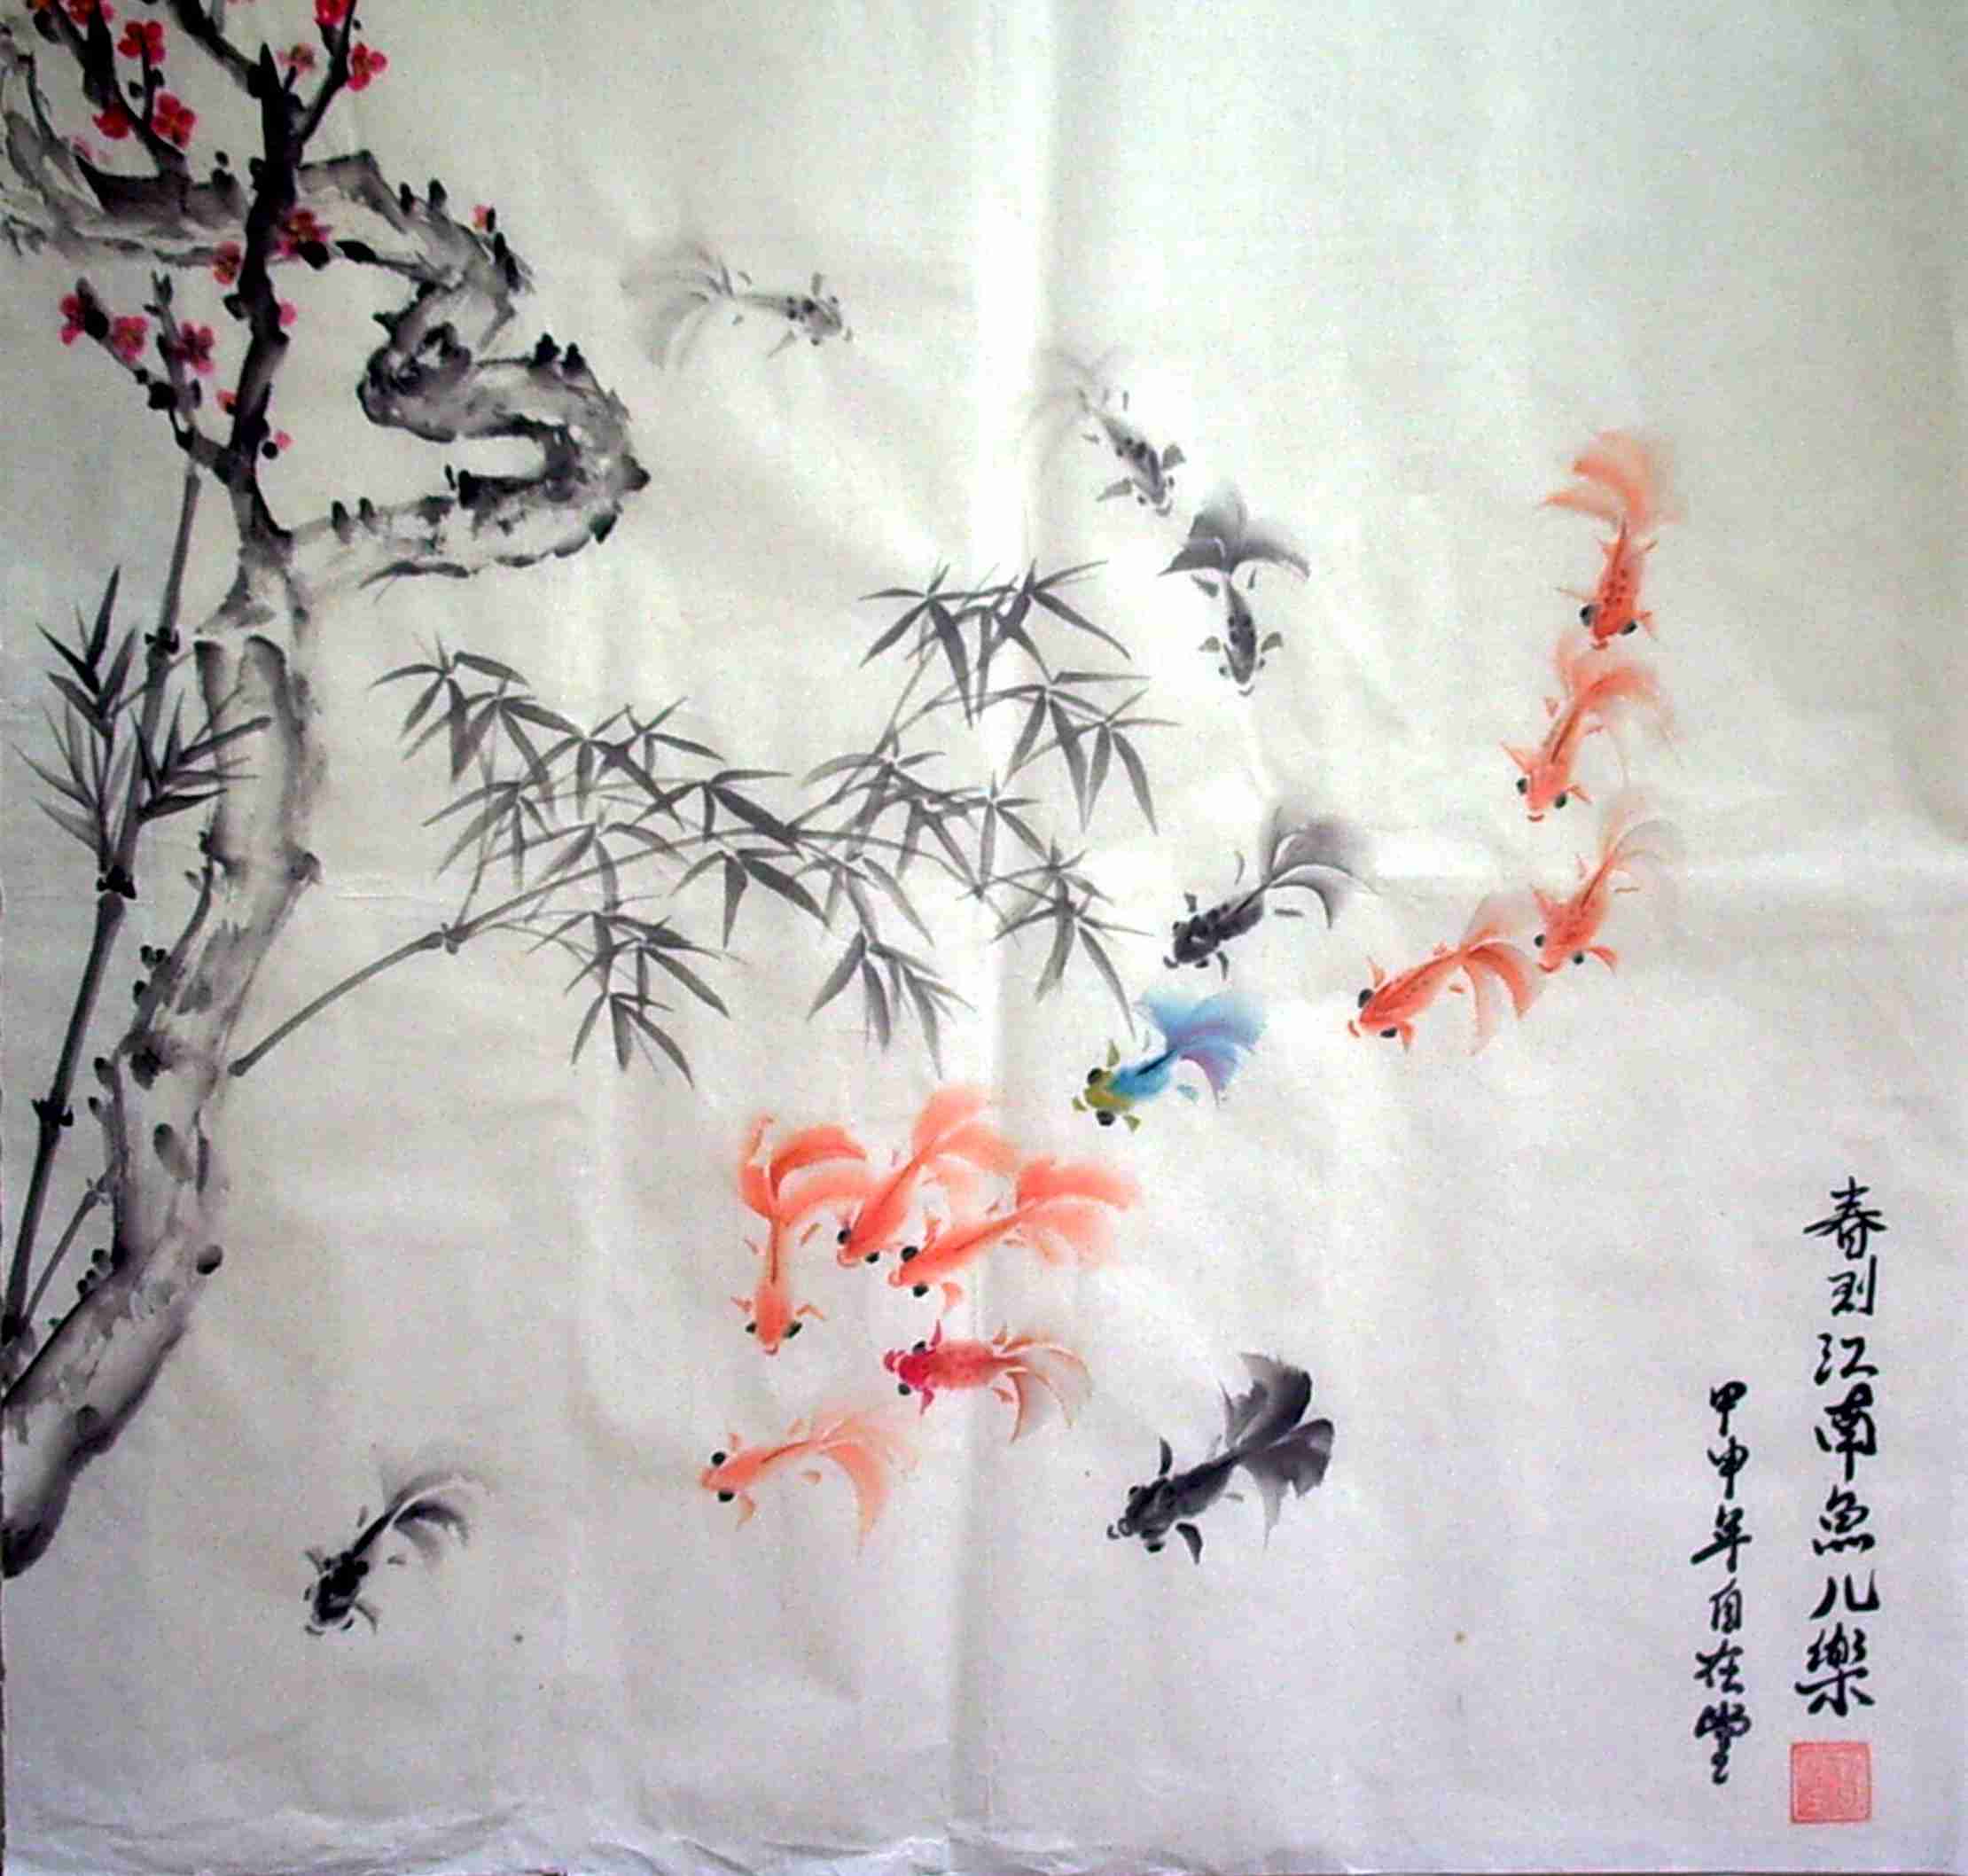 春到江南魚儿樂
甲申年自在堂